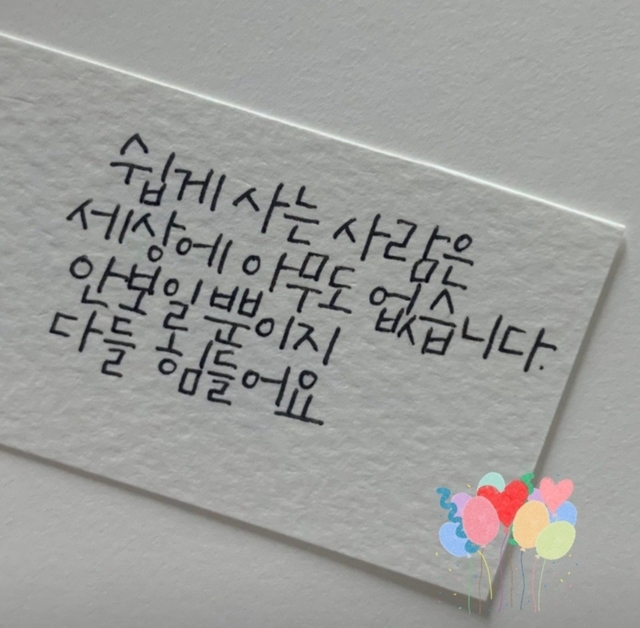 쉽게 사는 사람은
세상에 아무도 없습니다.
안보일뿐이지
다들 힘들어요